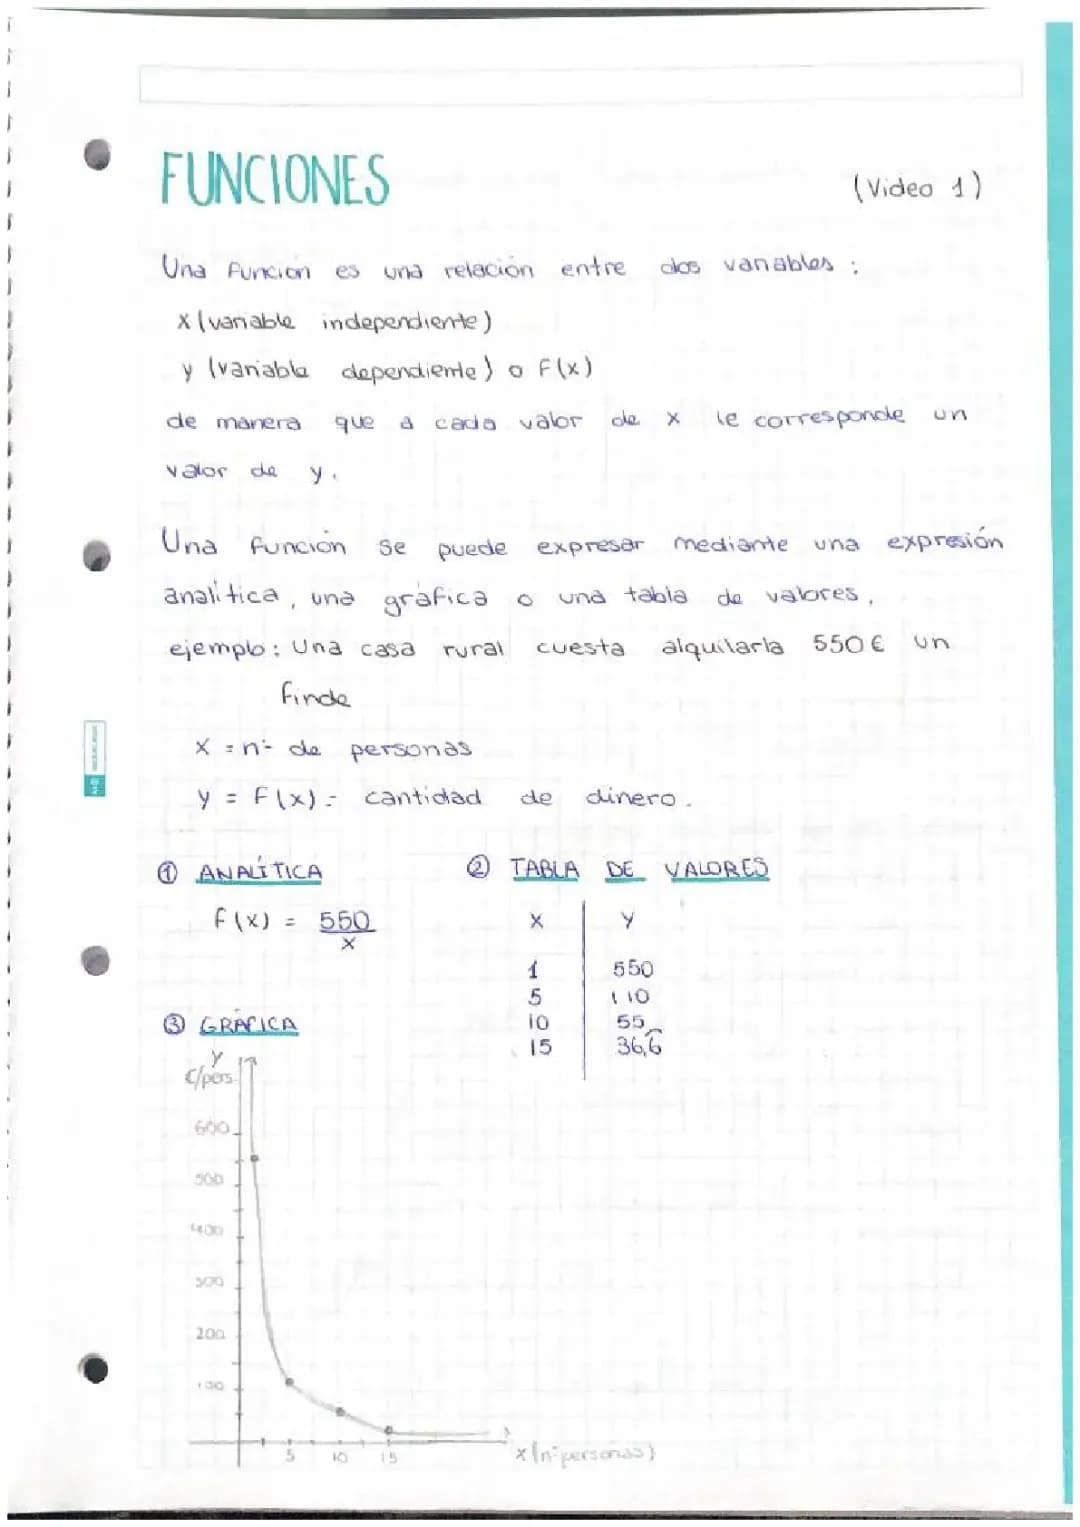 FUNCIONES
(Video 1)
Una función es una relación entre dos variables :
x (variable independiente)
y (variable dependiente) o F(x)
de manera que a cada valor de x le corresponde un
valor de y.
Una función se puede expresar mediante una expresión
analítica, una gráfica o una tabla de valores,
ejemplo: Una casa rural cuesta alquilarla 550€ un
finde
x = nº de personas
y = F(x) = cantidad de dinero.
① ANALÍTICA
f(x) = 550
x
② TABLA DE VALORES
X Y
1 550
5 110
10 55
15 36,6
③ GRÁFICA
y
€/pers.
600
500
400
300
200
100
5 10 15
x (nº personas)